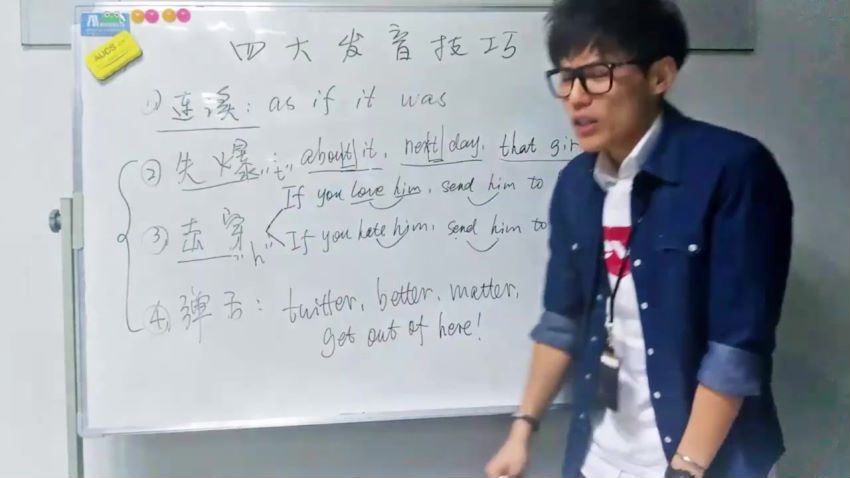 AUCS
四大发音技巧
① 连读: as if it was
② 失爆 "t" about it, next day, that gir
If you love him, send him to
③ 击穿 "h" If you hate him, send him to
④ 弹舌: twitter, better, matter,
get out of here!